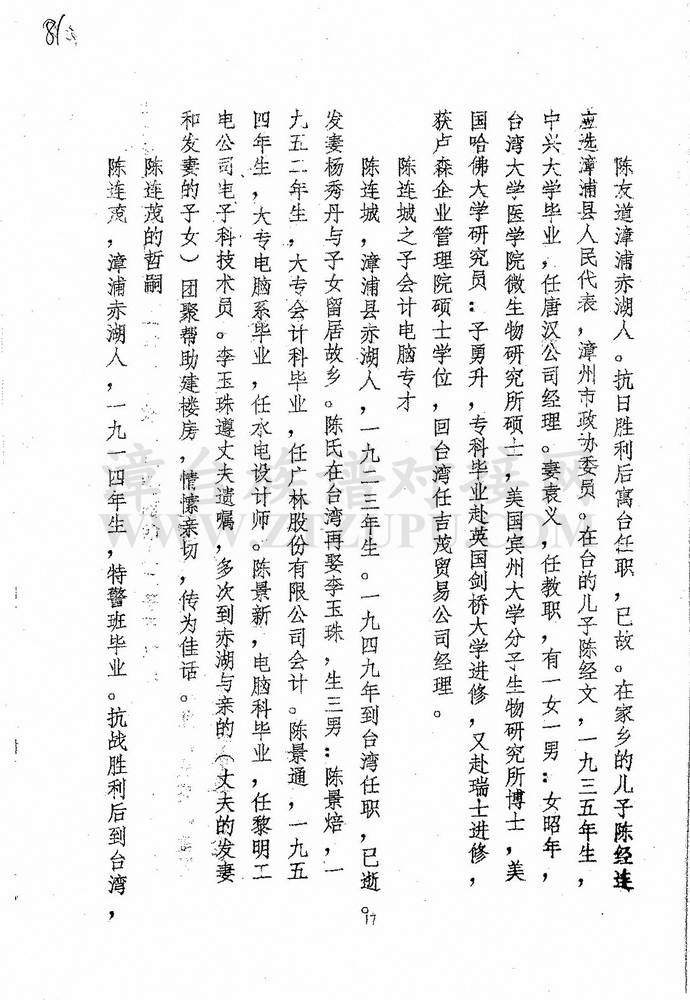 81
陈友道漳浦赤湖人。抗日胜利后寓台任职,已故。在家乡的儿子陈经连
应选漳浦县人民代表,漳州市政协委员。在台的儿子陈经文,一九三五年生,
中兴大学毕业,任唐汉公司经理。妻袁义,任教职,有一女一男:女昭年,
台湾大学医学院微生物研究所硕士,美国宾州大学分子生物研究所博士,美
国哈佛大学研究员:子勇升,专科毕业赴英国剑桥大学进修,又赴瑞士进修,
获卢森企业管理院硕士学位,回台湾任吉茂贸易公司经理。
陈连城之子会计电脑专才
陈连城,漳浦县赤湖人,一九二三年生。一九四九年到台湾任职,已逝。
发妻杨秀丹与子女留居故乡。陈氏在台湾再娶李玉珠,生三男:陈景焙,一
九五二年生,大专会计科毕业,任广林股份有限公司会计。陈景通,一九五
四年生,大专电脑系毕业,任水电设计师。陈景新,电脑科毕业,任黎明工
电公司电子科技术员。李玉珠遵丈夫遗嘱,多次到赤湖与亲的(丈夫的发妻
和发妻的子女)团聚帮助建楼房,情愫亲切,传为佳话。
陈连茂的哲嗣
陈连茂,漳浦赤湖人,一九一四年生,特警班毕业。抗战胜利后到台湾,
17
漳台族谱对接网
WWW.ZTZUPU.COM